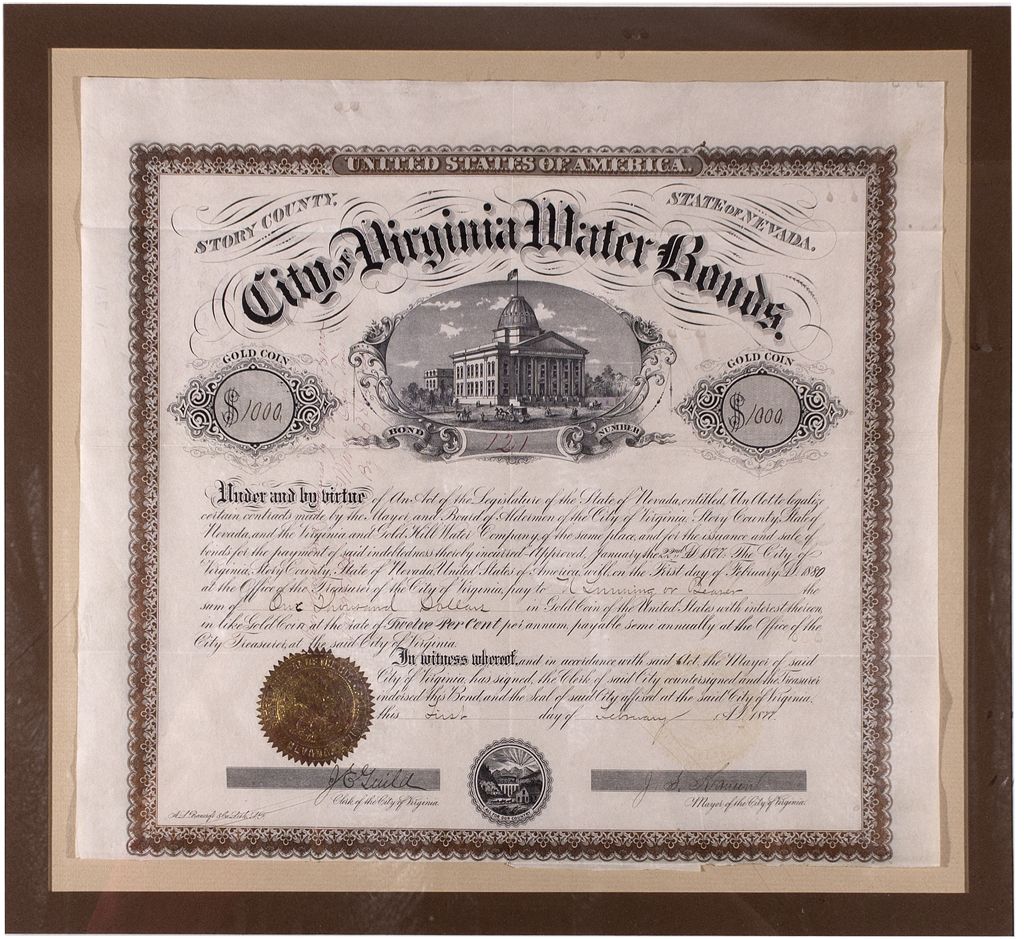 UNITED STATES OF AMERICA.
STORY COUNTY.
STATE OF NEVADA.
City of Virginia Water Bonds.
GOLD COIN
GOLD COIN
$1000
$1000
BOND NUMBER
121
Under and by virtue of An Act of the Legislature of the State of Nevada, entitled, An Act to legalize
certain contracts made by the Mayor and Board of Aldermen of the City of Virginia Story County, State of
Nevada, and the Virginia and Gold Hill Water Company, of the same place, and for the issuance and sale of
bonds for the payment of said indebtedness thereby incurred. Approved, January the 22nd A.D. 1877. The City of
Virginia, Story County, State of Nevada, United States of America, will, on the First day of February A.D. 1880
at the Office of the Treasurer of the City of Virginia, pay to or Bearer the
sum of One Thousand Dollars in Gold Coin of the United States with interest thereon,
in like Gold Coin, at the rate of Twelve Per Cent per annum, payable semi annually at the Office of the
City Treasurer, at the said City of Virginia.
In witness whereof, and in accordance with said Act, the Mayor of said
City of Virginia, has signed, the Clerk of said City countersigned and the Treasurer
indorsed this Bond, and the Seal of said City affixed at the said City of Virginia,
this first day of February A.D. 1877.
J E Guild
Clerk of the City of Virginia.
Mayor of the City of Virginia.
ALL FOR OUR COUNTRY
A. L. Bancroft & Co. Lith. S.F.